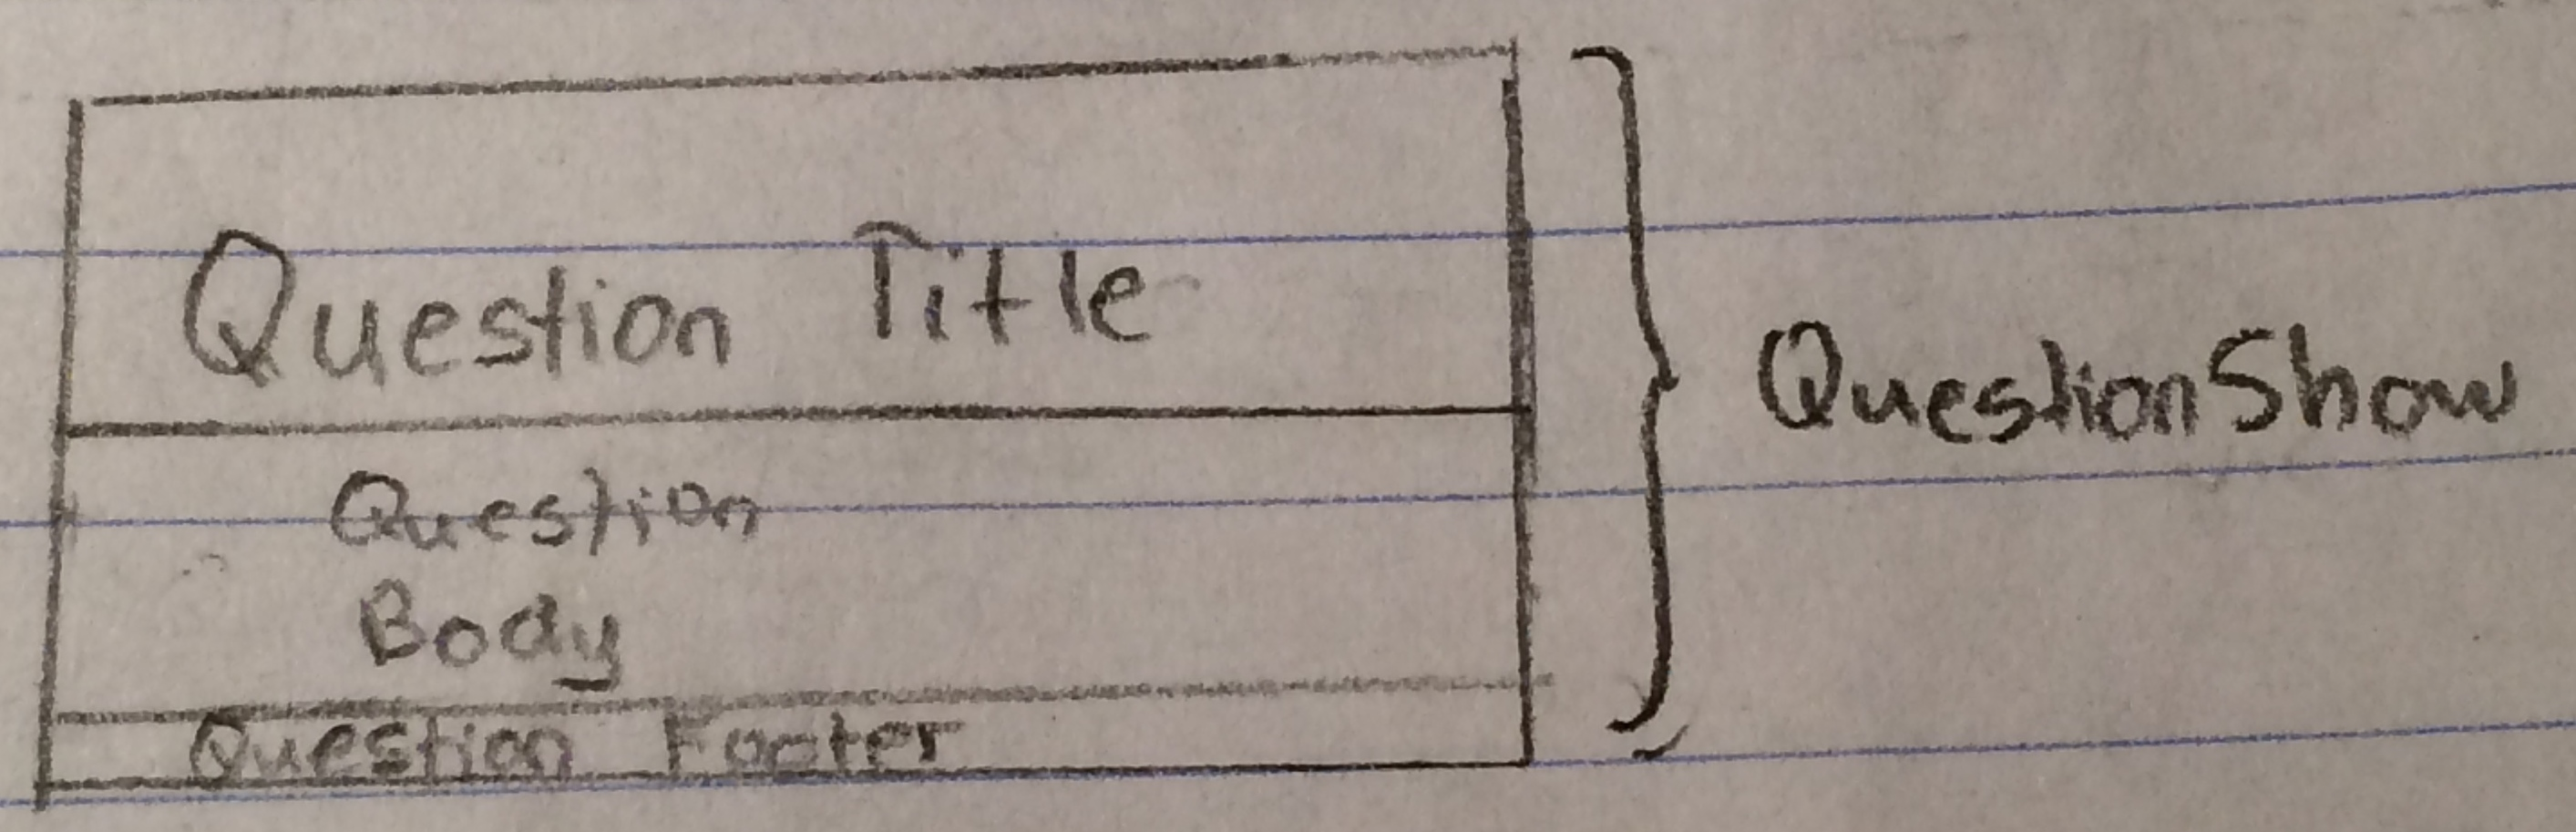 Question Title
Question
Body
Question Footer
QuestionShow